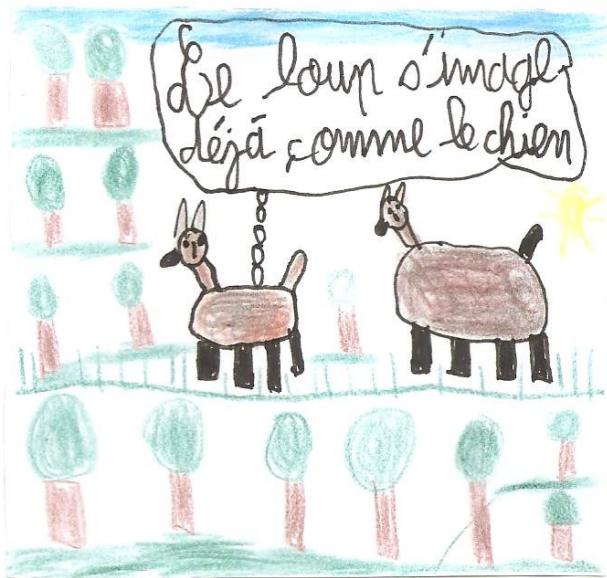 Le loup s'image
déjà comme le chien